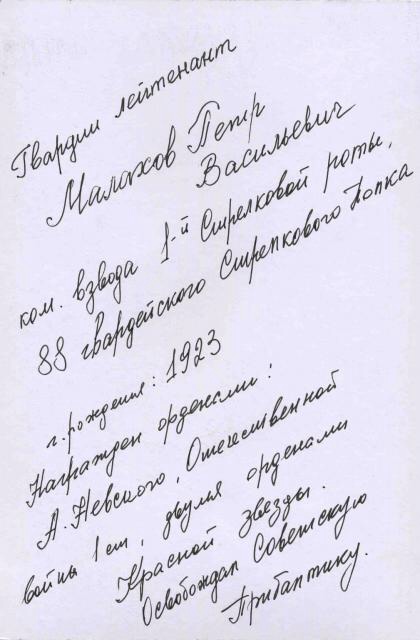 Гвардии лейтенант
Малахов Петр
Васильевич
ком. взвода 1-й Стрелковой роты,
88 гвардейского Стрелкового Полка
г. рождения: 1923
Награжден орденами:
А. Невского, Отечественной
войны 1 ст, двумя орденами
Красной звезды.
Освобождал Советскую
Прибалтику.